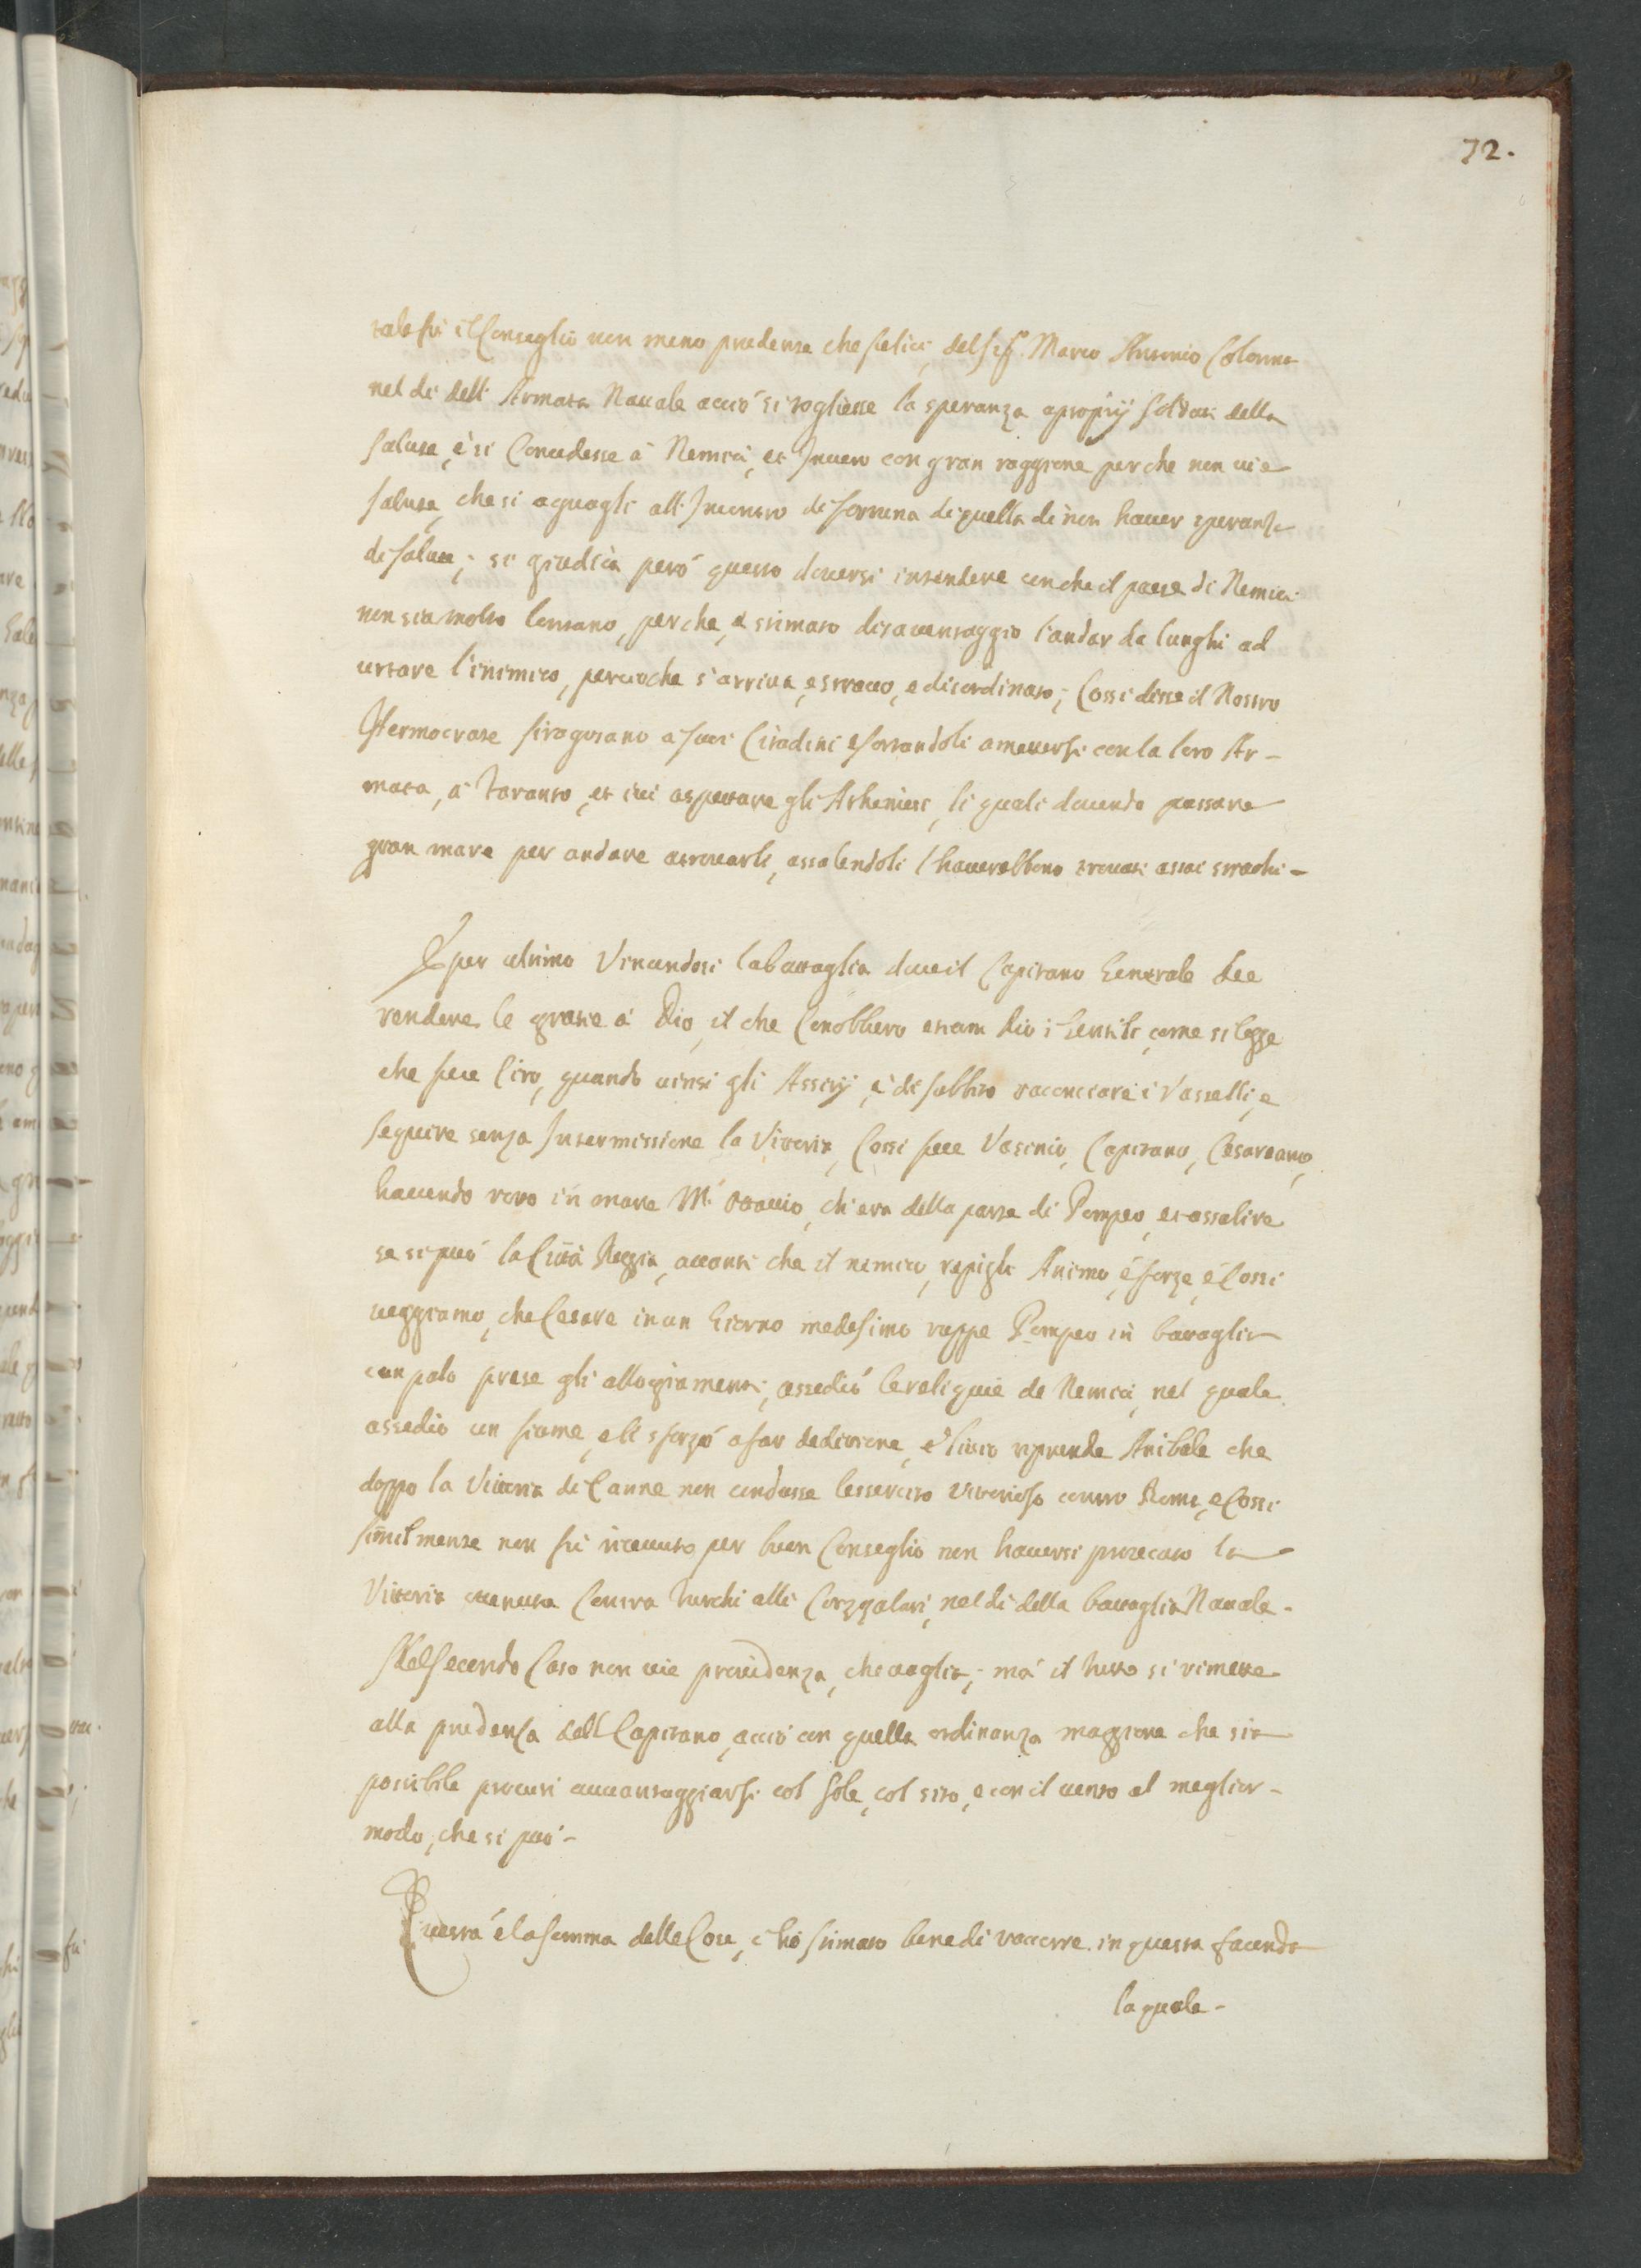 72.
tale fù il Conseglio non meno prudente che felice, del Sig.r Marco Antonio Colonna
nel di dell' Armata Navale acciò si togliesse la speranza a proprij soldati della
salute, è si Concedesse à Nemici, et Invero con gran raggione perche non vi e
salute, che si aguagli all' Incontro di fortuna di quella di non haver speranza
di salute; si giudica però questo doversi intendere con che il paese di Nemici
non sia molto lontano, perche, è stimato disavantaggio l'andar da lunghi ad
urtare l'inimico, percioche s'arriva, e stracco, e disordinato; Cossi disse il Nostro
Hermocrate siragusano a suoi Citadini esortandoli a moversi con la loro Ar-
mata, à Taranto, et ivi aspettare gli Atheniesi, li quali dovendo passare
gran mare per andare a trovarli, assalendoli l'haverebbono trovati assai stracchi-
E per ultimo Vincendosi la battaglia dove il Capitano Generale dee
rendere le gratie à Dio, il che Conobbero etiam dio i Gentili, come si legge
che fece Ciro, quando vinsi gli Assirij, è di subbito racconciare i Vasselli, e
seguire senza Intermissione la Vittoria, Cossi fece Vatinio, Capitano, Cesareano,
havendo roto in mare M. Ottavio, ch'era della parte di Pompeo, et assalire
se si può la Città Reggia, avanti che il nemico, repigli Animo, è forze, è Cossi
veggiamo, che Cesare in un Giorno medesimo roppe Pompeo in bataglia
campale prese gli alloggiamenti, assediò le reliquie de Nemici, nel quale
assedio un fiume, e li sforzò a far deditione, è Livio riprende Anibale che
doppo la Vittoria di Canne non condusse l'essercito vitorioso contro Roma, e Cossi
similmente non fù ricevuto per buon Conseglio non haversi procacato la
Vittoria ottenuta Contra Turchi alli Corzzolari, nel di della battaglia Navale.
Nel secondo Caso non vi è providenza, che vaglia; mà il tutto si rimette
alla prudenza dell Capitano, acciò con quella ordinanza maggiore che sia
possibile procuri avvantaggiarsi col sole, col sito, e con il vento al meglior-
modo, che si può-
Questa è la somma delle Cose, c'hò stimato bene di raccorre in questa facenda
la quale-